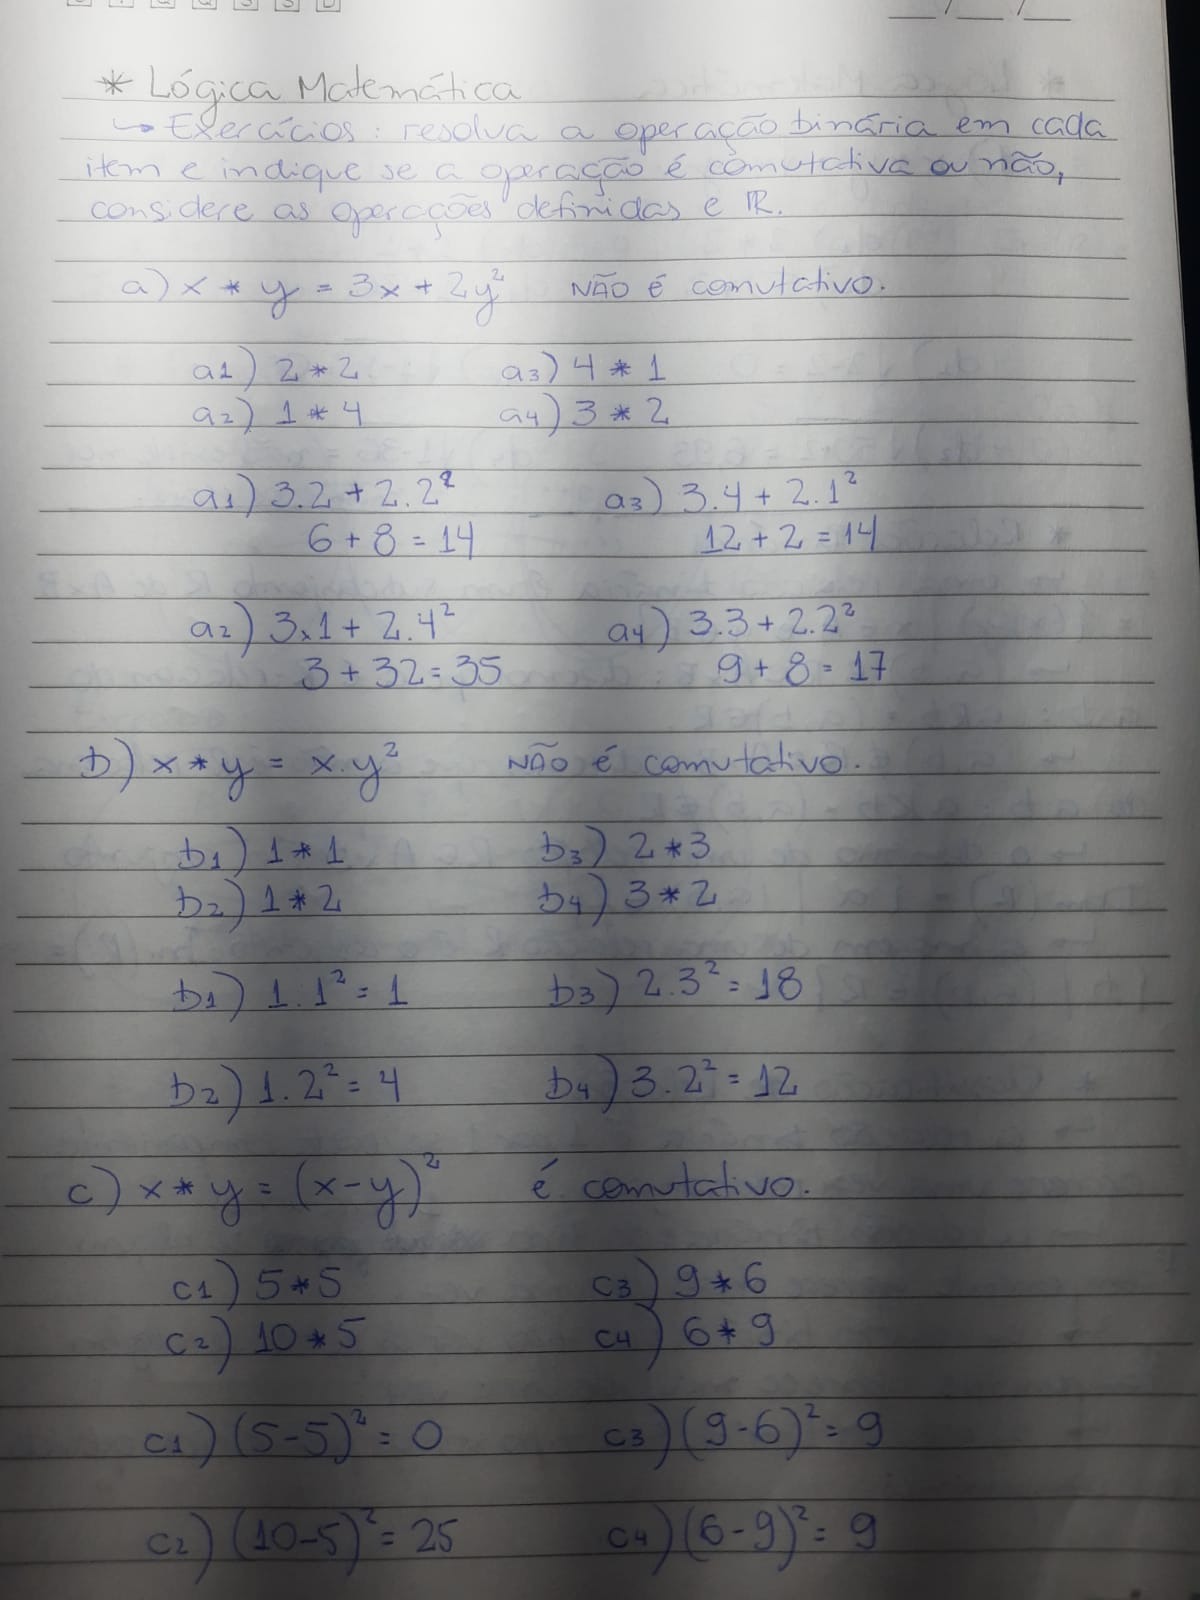 * Lógica Matemática
↳ Exercícios: resolva a operação binária em cada
item e indique se a operação é comutativa ou não,
considere as operações definidas e ℝ.
a) x * y = 3x + 2y² NÃO é comutativo.
a1) 2 * 2 a3) 4 * 1
a2) 1 * 4 a4) 3 * 2
a1) 3.2 + 2.2² a3) 3.4 + 2.1²
6 + 8 = 14 12 + 2 = 14
a2) 3x1 + 2.4² a4) 3.3 + 2.2²
3 + 32 = 35 9 + 8 = 17
b) x * y = x.y² NÃO é comutativo.
b1) 1 * 1 b3) 2 * 3
b2) 1 * 2 b4) 3 * 2
b1) 1.1² = 1 b3) 2.3² = 18
b2) 1.2² = 4 b4) 3.2² = 12
c) x * y = (x-y)² é comutativo.
c1) 5 * 5 c3) 9 * 6
c2) 10 * 5 c4) 6 * 9
c1) (5-5)² = 0 c3) (9-6)² = 9
c2) (10-5)² = 25 c4) (6-9)² = 9